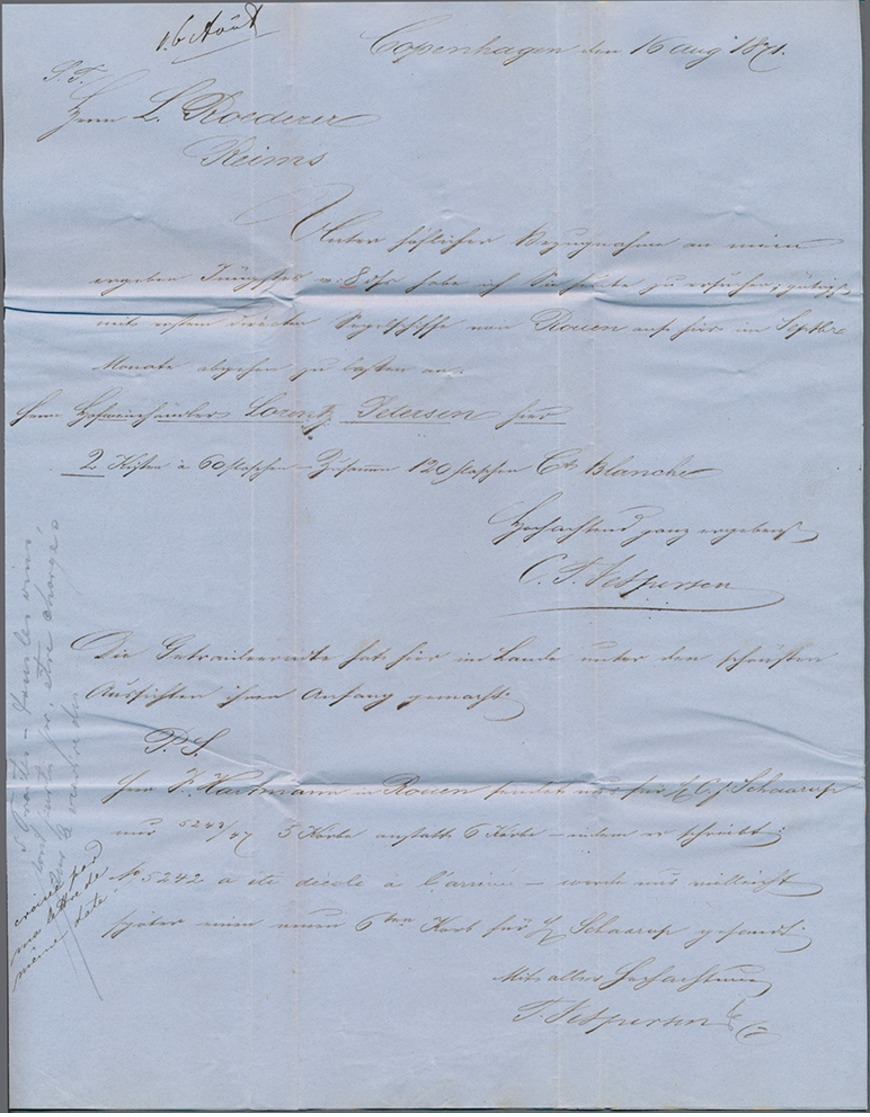 16 Août
Copenhagen den 16 Aug 1871.
S. T.
Herrn L. Roederer
Reims
Unter höflicher Bezugnahme an mein
ergeben Jüngstes v. 8 ds habe ich Sie heute zu ersuchen, gütigst
mit erstem directen Segelschiffe von Rouen auf hier im Septbre
Monate abgehen zu lassen an.
Herrn Hofweinhändler Lorentz Petersen hier
2 Kisten à 60 flaschen – Zusammen 120 flaschen Cte Blanche
Hochachtend ganz ergebenst
C. F. Jespersen
Die Getraideernte hat hier im Lande unter den schönsten
Aussichten ihren Anfang gemacht.
P.S.
Herr F. Hartmann in Rouen sendet uns für H. C. J. Schaarup
nur 5243/47 5 Körbe anstatt 6 Körbe – indem er schreibt:
No 5242 a été à l'arrivée – werde uns vielleicht
später einen neuen 6ten Korb für H Schaarup gesandt.
Mit aller Hochachtung
F. Jespersen & C
tous les vins
être chargés
croisé par
ma lettre de
même date